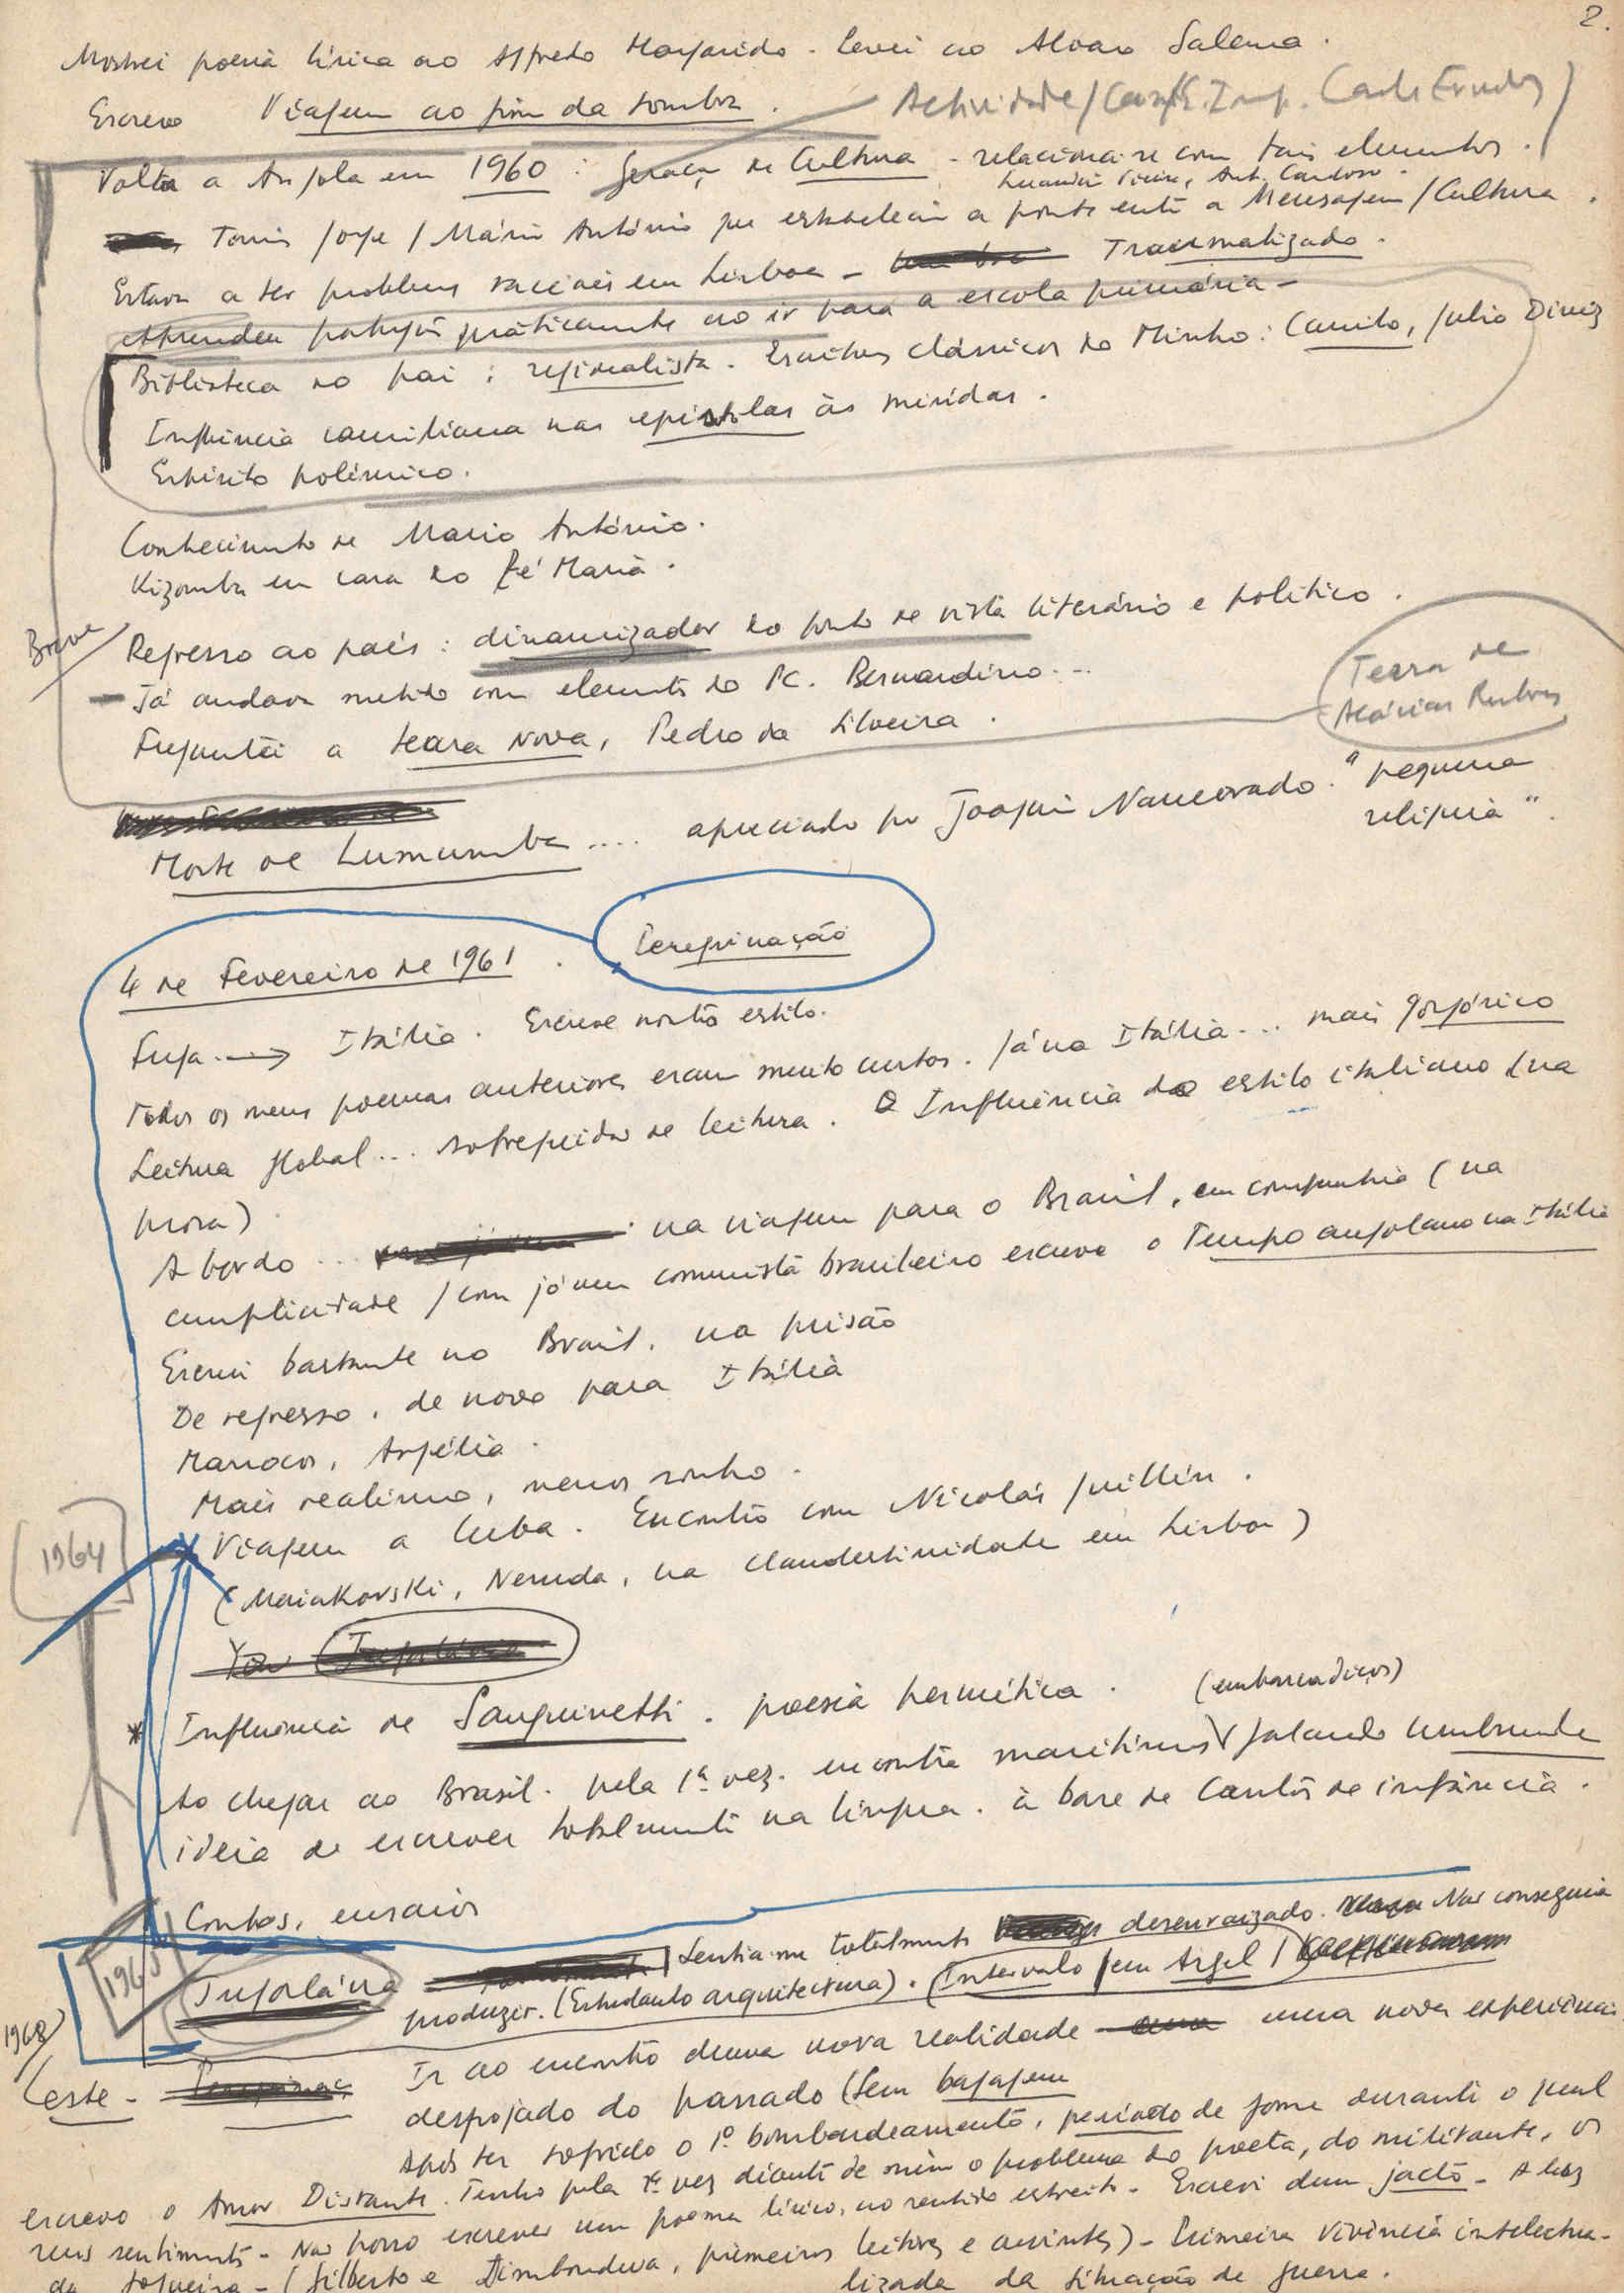 2.
Mostrei poesia lírica ao Alfredo Margarido. Levei ao Alvaro Salema.
Escrevo Viagem ao fim da sombra.
Actividade / Casa E. Imp. Carlos Ervedosa /
Volta a Angola em 1960: Geração de Cultura - relaciona-se com tais elementos.
Luandino Vieira, Ant. Cardoso.
Tomás Jorge / Mário António que estabelecia a ponte entre a Mensagem / Cultura.
Estava a ter problemas raciais em Lisboa - Traumatizado.
Aprendeu português práticamente ao ir para a escola primária -
Biblioteca do pai: regionalista. Escritores clássicos do Minho: Camilo, Julio Diniz
Influência camiliana nas epistolas às miúdas.
Espírito polémico.
Conhecimento de Mario António.
Kizomba em casa do Zé Maria.
Breve
Regresso ao país: dinamizador do ponto de vista literário e politico.
- Já andava metido com elementos do PC. Bernardino...
Terra de Acácias Rubras
Frequentei a Seara Nova, Pedro da Silveira.
Morte de Lumumba .... apreciado por Joaquim Namorado. "pequena
relíquia".
4 de Fevereiro de 1961. Peregrinação
Fuga. → Itália. Escreve noutro estilo.
Todos os meus poemas anteriores eram muito curtos. Já na Itália... mais gorgórico
Leitura global... sofreguidão de leitura. Influência do estilo italiano (na
prosa)
A bordo ... na viagem para o Brasil, em companhia (na
cumplicidade) com jóvem comunista brasileiro escreve o Tempo angolano na Itália
Escrevi bastante no Brasil, na prisão
De regresso, de novo para Itália
Marrocos, Argélia.
Mais realismo, menos sonho.
1964
Viagem a Cuba. Encontro com Nicolás Guillén.
(Maiakovski, Neruda, na clandestinidade em Lisboa)
* Influência de Sanguinetti. poesia hermética.
(embarcadiços)
Ao chegar ao Brasil. pela 1ª vez. encontra marítimos falando umbundu
ideia de escrever totalmente na língua. à base de Cantos de infância.
Contos, ensaios
1965
Inforlánia Sentia-me totalmente desenraizado. Não conseguia
produzir. (Estudando arquitectura). (Intervalo em Argel)
1968
Leste - Ir ao encontro duma nova realidade uma nova experiência
despojado do passado (sem bagagem
Após ter sofrido o 1º bombardeamento, período de fome durante o qual
escrevo o Amor Distante. Tenho pela 1ª vez diante de mim o problema do poeta, do militante, os
seus sentimentos - Não posso escrever um poema lírico, no sentido estreito. Escrevi dum jacto - A luz
da fogueira - (Gilberto e Dimbondwa, primeiros leitores e ouvintes) - Primeira vivência intelectua-
lizada da situação de guerra.